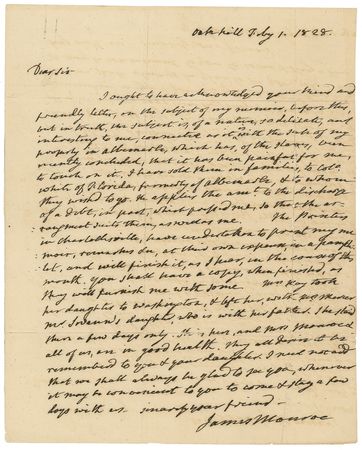 Oakhill Feby 1. 1828.
Dear Sir
I ought to have acknowledged your kind and
friendly letter, on the subject of my memoir, before this,
but in truth, the subject is, of a nature, so delicate, and
interesting to me, connected as it is, with the sale of my
property in albemarle, which has, of the slaves, been
recently concluded, that it has been painful for me,
to touch on it. I have sold them in families, to Colo.
White of Florida, formerly of albemarle, & to whom
they wish'd to go. He applies the amt. to the discharge
of a debt, in part, which press'd me, so that the ar-
rangment suits them, as well as me. The Printers
in Charlottesville, have undertaken to print my me-
moir, remarks &c, at their own expense, in a pamph-
let, and will finish it, as I hear, in the course of this
month. you shall have a copy, when finish'd, as
they will furnish me with some. Mrs Hay took
her daughter to Washington, & left her, with
Mr daughter, who is with her father. She staid
there a few days only. She is here, and Mrs Monroe &
all of us, are in good health. They all desire to be
remember'd to you & your daughter. I need not add
that we shall always be glad to see you, whenever
it may be convenient to you to come & stay a few
days with us. sincerely your friend
James Monroe